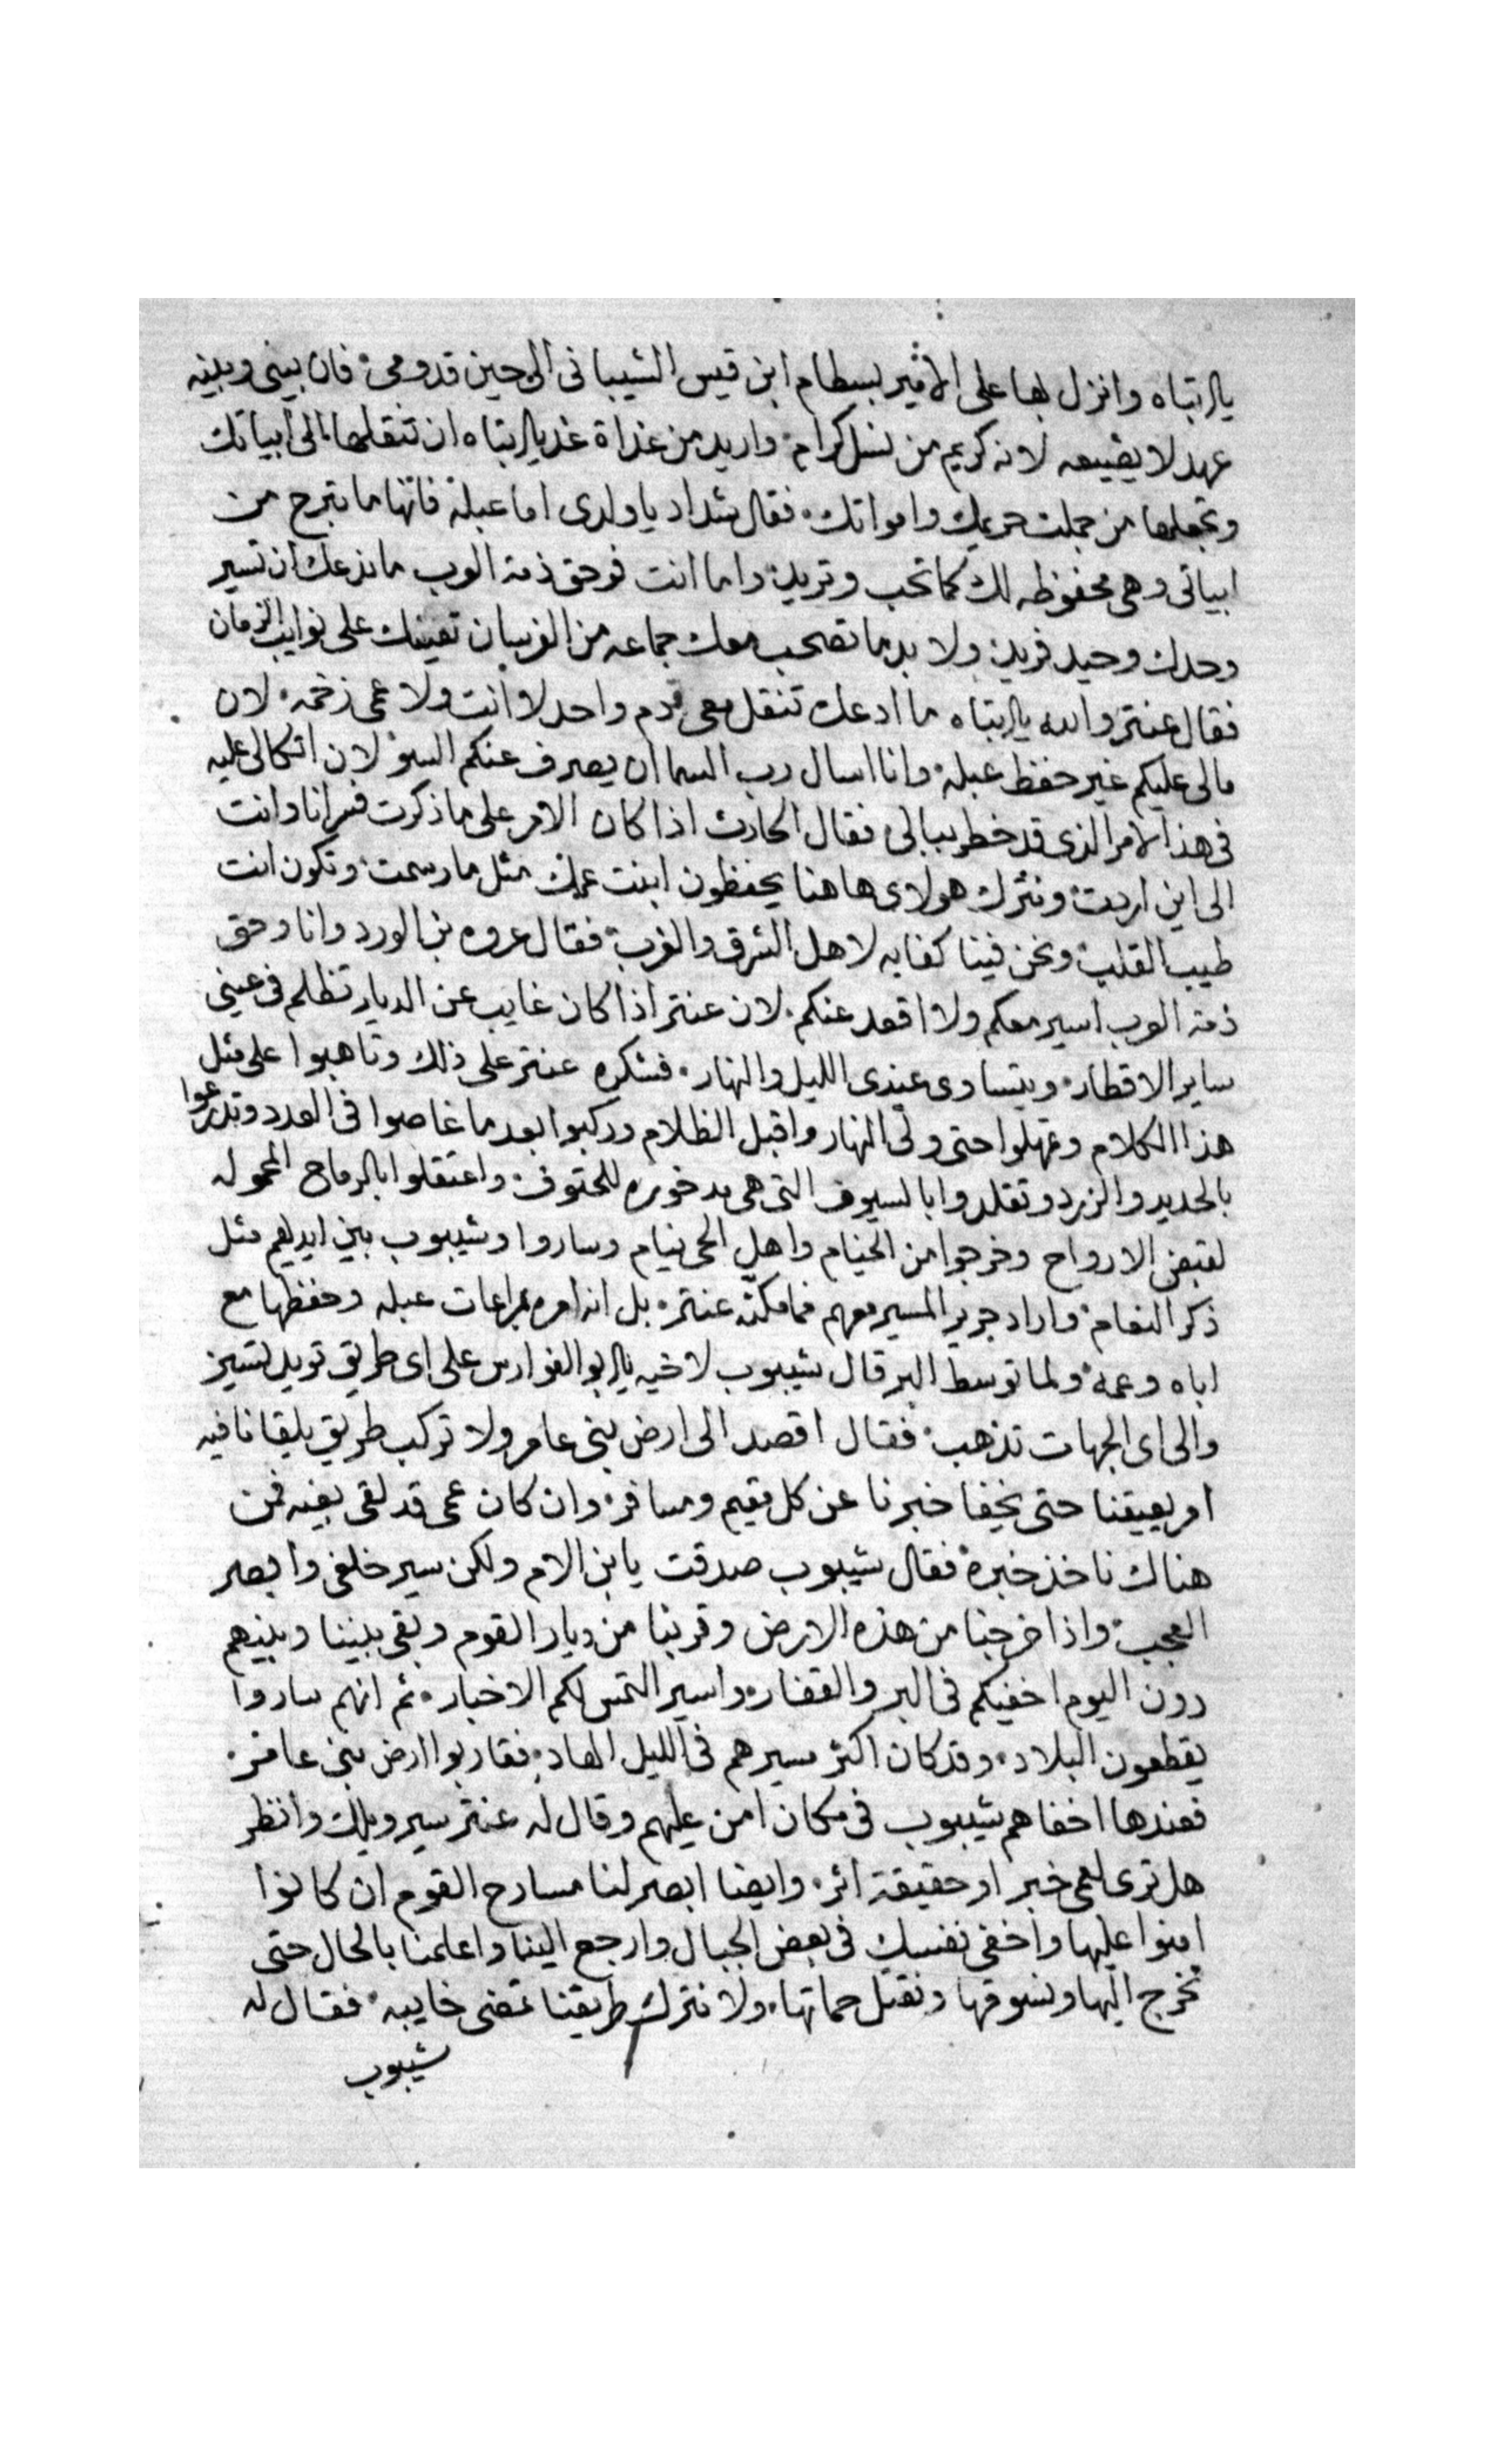 يا ابتاه وانزل بها على الامير بسطام ابن قيس الشيبانى الى حين قدومى فان بينى وبينه
عهد لا يضيعه لانه كريم من نسل كرام واريد من غداة غد يا ابتاه ان تنقلها الى ابياتك
وتجعلها من جملت حريمك وامواتك فقال شداد يا ولدى اما عبلة فانها ما تبرح من
ابياتى وهى محفوظه لك كما تحب وتريد واما انت فوحق ذمة العرب ما ندعك ان تسير
وحدك وحيد فريد ولا بد ما تصحب معك جماعه من الفرسان تعينك على نوايب الزمان
فقال عنتر والله يا ابتاه ما ادعك تنقل معى قدم واحد لا انت ولا عمى زخمه لان
مالى عليكم غير حفظ عبلة وانا اسال رب السما ان يصرف عنكم السؤ لان اتكالى عليه
فى هذا الامر الذى قد خطر ببالى فقال الحارث اذا كان الامر على ما ذكرت فسر انا وانت
الى اين اردت ونترك هولاى هاهنا يحفظون ابنت عمك مثل ما رسمت وتكون انت
طيب القلب ونحن فينا كفايه لاهل الشرق والغرب فقال عروه بن الورد وانا وحق
ذمة العرب اسير معكم ولا اقعد عنكم لان عنتر اذا كان غايب عن الديار تظلم فى عينى
ساير الاقطار ويتساوى عندى الليل والنهار فشكره عنتر على ذلك وتاهبوا على مثل
هذا الكلام وتمهلوا حتى ولى النهار واقبل الظلام وركبوا بعد ما غاصوا فى العدد وتدرعوا
بالحديد والزرد وتقلدوا بالسيوف التى هى مدخوره للحتوف واعتقلوا بالرماح المحموله
لقبض الارواح وخرجوا من الخيام واهل الحى نيام وساروا وشيبوب بين ايديهم مثل
ذكر النعام واراد جرير المسير معهم فما مكنه عنتر بل انه امره بمراعات عبله وحفظها مع
اباه وعمه ولما توسط البر قال شيبوب لاخيه يا ابو الفوارس على اى طريق تريد تسير
والى اى الجهات تذهب فقال اقصد الى ارض بنى عامر ولا تركب طريق يلقانا فيه
امر يعيقنا حتى يخفا خبرنا عن كل مقيم ومسافر وان كان عمى قد لقى بغيه فمن
هناك ناخذ خبره فقال شيبوب صدقت يا بن الام ولكن سير خلفى وابصر
العجب واذا خرجنا من هذه الارض وقربنا من ديار القوم وبقى بيننا وبينهم
دون اليوم اخفيكم فى البر والقفار واسير التمس لكم الاخبار ثم انهم ساروا
يقطعون البلاد وقد كان اكثر مسيرهم فى الليل الهاد فقاربوا ارض بنى عامر
فعندها اخفاهم شيبوب فى مكان امن عليهم وقال له عنتر سير ويلك وانظر
هل ترى لعمى خبر او حقيقة اثر وايضا ابصر لنا مسارح القوم ان كانوا
امنوا عليها واخفى نفسك فى بعض الجبال وارجع الينا واعلمنا بالحال حتى
نخرج اليها ونسوقها ونقتل حماتها ولا نترك طريقنا تمضى خايبه فقال له
شيبوب